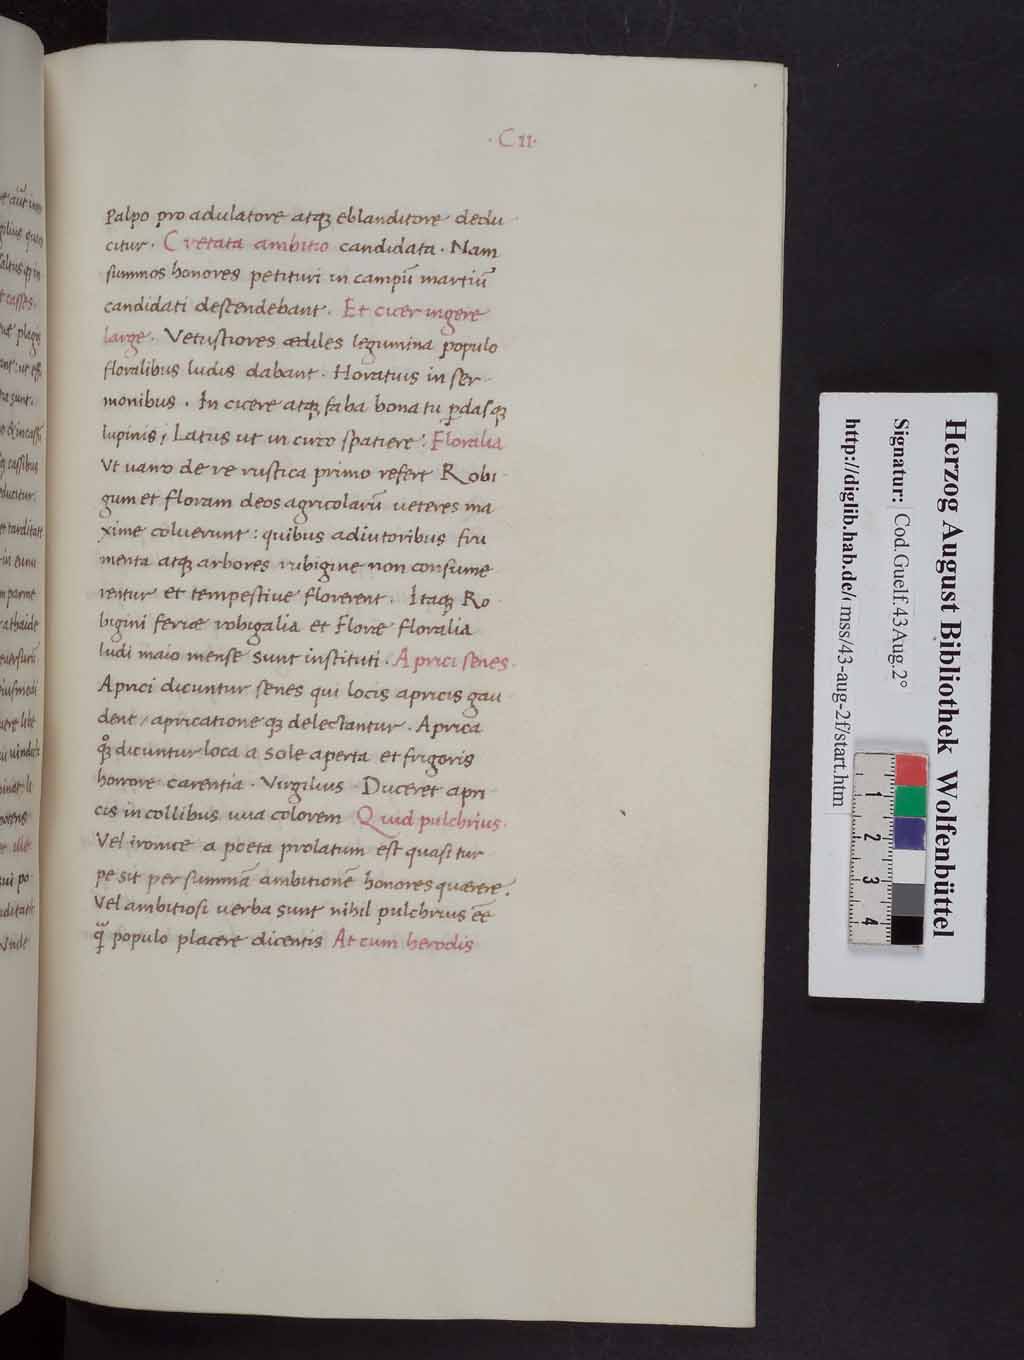 ·CII·
Palpo pro adulatore atqꝫ eblanditore dedu
citur· Cretata ambitio candidata· Nam
summos honores petituri in campū martiū
candidati descendebant· Et cicer ingere
large· Vetustiores ædiles legumina populo
floralibus ludis dabant· Horatius in ser
monibus· In cicere atqꝫ faba bona tu ꝑdasqꝫ
lupinis; Latus ut in circo spatiere: Floralia
Vt uarro de re rustica primo refert Robi
gum et floram deos agricolarū ueteres ma
xime coluerunt: quibus adiutoribus fru
menta atqꝫ arbores rubigine non consume
rentur et tempestiue florerent. Itaqꝫ Ro
bigini feriæ robigalia et Floræ floralia
ludi maio mense sunt instituti· Aprici senes·
Aprici dicuntur senes qui locis apricis gau
dent / apricatione qꝫ delectantur· Aprica
qꝫ̊ dicuntur loca a sole aperta et frigoris
horrore carentia· Virgilius Duceret apri
cis in collibus uua colorem Quid pulchrius·
Vel ironice a poeta prolatum est quasi tur
pe sit per summā ambitionē honores quærere?
Vel ambitiosi uerba sunt nihil pulchrius ēē
q̃ populo placere dicentis At cum herodis
Herzog August Bibliothek Wolfenbüttel
Signatur: Cod.Guelf.43Aug.2°
http://diglib.hab.de/ mss/43-aug-2f/start.htm
1
2
3
4